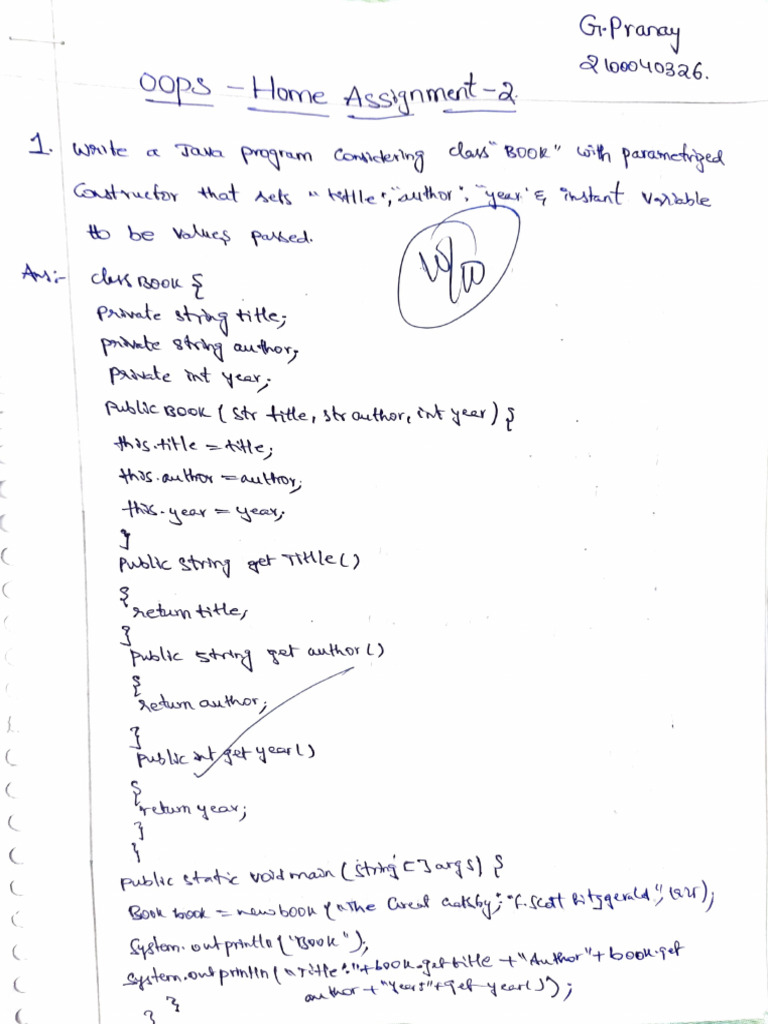 G.Pranay
2100040326.
OOPS - Home Assignment-2.
1. Write a Java program Considering class "BOOK" with parametrized
Constructor that sets "tittle", "author", "year" & instant variable
to be values passed.
Ans:- class BOOK {
private string title;
private string author;
private int year;
public BOOK (str title, str author, int year) {
this.title = title;
this.author = author;
this.year = year;
}
public string get Tittle()
{
return title;
}
public string get author()
{
return author;
}
public int get year()
{
return year;
}
}
public static void main (string [] args) {
Book book = new book ("The Great Gatsby", "F. Scott Fitzgerald",
System.out println ("Book");
system.out println ("Title:"+book.get title + "Author"+book.get
author + "Years"+get year());
} }
10/10